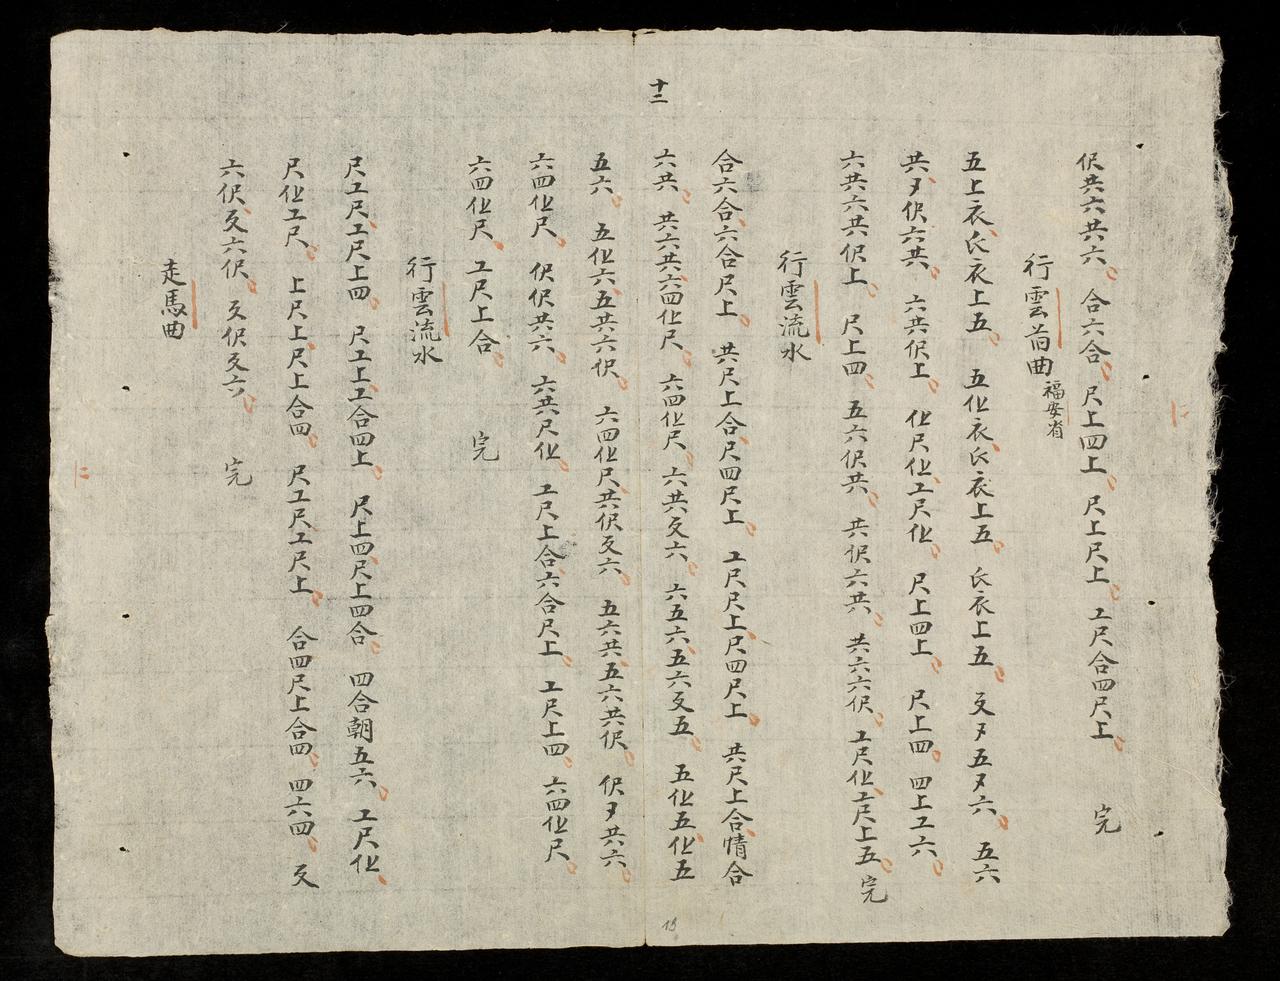 十二
伬共六共六 合六合 尺上四上 尺上尺上 工尺合四尺上 完
行雲首曲福安省
五上衣氏衣上五 五化衣氏衣上五 氏衣上五 叐𠂊五𠂊六 五六
共𠂊伬六共 六共伬上 化尺化工尺化 尺上四上 尺上四 四上工六
六共六共伬上 尺上四 五六伬共 共伬六共 共六六伬 工尺化工尺上五 完
行雲流水
合六合六合尺上 共尺上合尺四尺上 工尺尺上尺四尺上 共尺上合情合
六共 共六共六四化尺 六四化尺 六共叐六 六五六五六叐五 五化五化五
五六 五化六五共六伬 六四化尺共伬叐六 五六共五六共伬 伬𠂊共六
六四化尺 伬伬共六 六共尺化 工尺上合六合尺上 工尺上四 六四化尺
六四化尺 工尺上合 完
行雲流水
尺工尺工尺上四 尺工上工合四上 尺上四尺上四合 四合朝五六 工尺化
尺化工尺 上尺上尺上合四 尺工尺工尺上 合四尺上合四 四六四 叐
六伬叐六伬 叐伬叐六 完
走馬曲
13